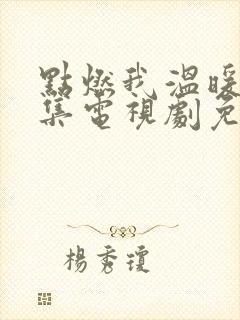 點燃我溫暖
集電視劇免
楊秀瓊